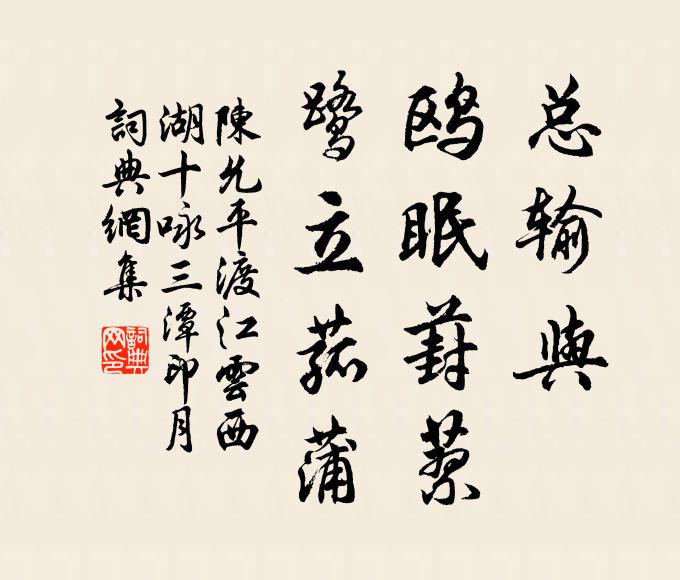 总输與
鸥眠葑蔡
鹭立菰蒲
陳允平渡江雲西
湖十咏三潭印月
詞典網集
詞典
网印